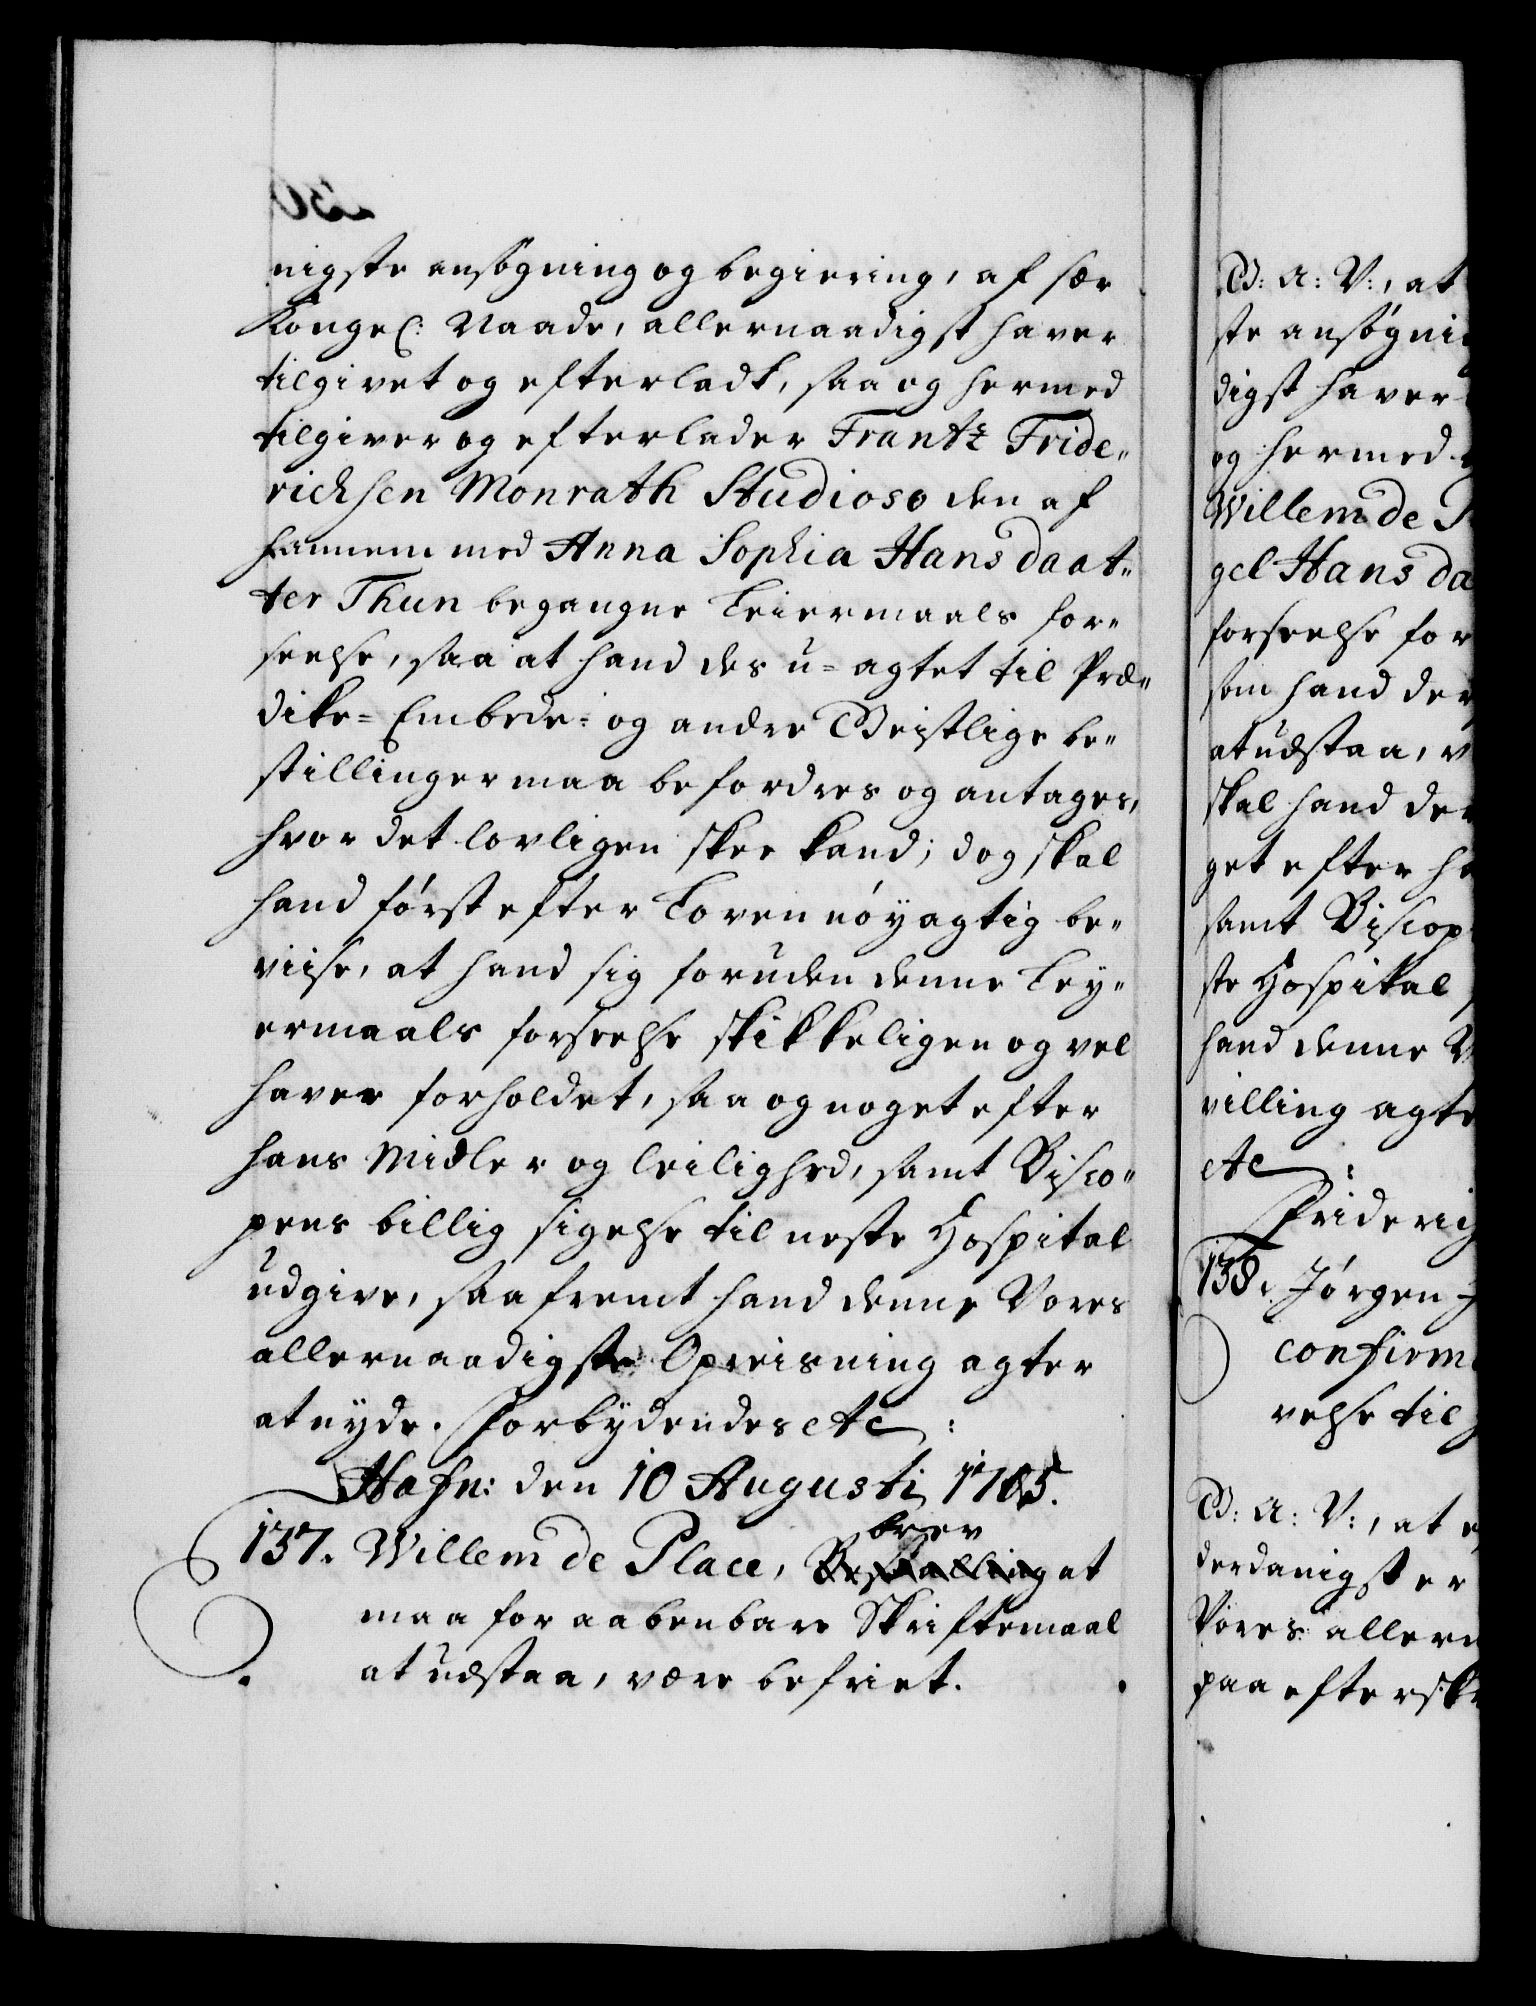 nigste ansögning og begiering, af sær
Kongel: Naade, allernaadigst haver
tilgivet og efterladt, saa og hermed
tilgiver og efterlader Frantz Fride„
richsen Monrath Studioso den af
hannem med Anna Sophia Hans daat„
ter Thun begangne Leiermaals for„
seelse, saa at hand des u-agtet til Præ„
dike- Embede- og andre Geistlige be„
stillinger maa befordres og antages,
hvor det lovligen skee kand; dog skal
hand först efter Loven nöyagtig be„
viise, at hand sig foruden denne Ley„
ermaals forseelse skikkeligen og vel
haver forholdet, saa og noget efter
hans Midler og leilighed, samt Bisco„
pens billig sigelse til neste Hospital
udgive, saafremt hand denne Vores
allernaadigste Opreisning agter
at nyde. Forbydendes etc:
Hafn: den 10 Augusti 1705.
brev
137. Willem de Place, Bestalling at
maa for aabenbare Skriftemaal
at udstaa, være befriet.
G: A: V:, at
ste ansögni
digst haver
og hermed
Willem de P
gel Hans da
forseelse for
som hand de
at udstaa, v
skal hand de
get efter ha
samt Biscop
ste Hospital
hand denne V
villing agte
etc:
Friderich
138. Jörgen
confirm
velse til
G: A: V:, at
derdanigst er
Vores allern
paa eftersk